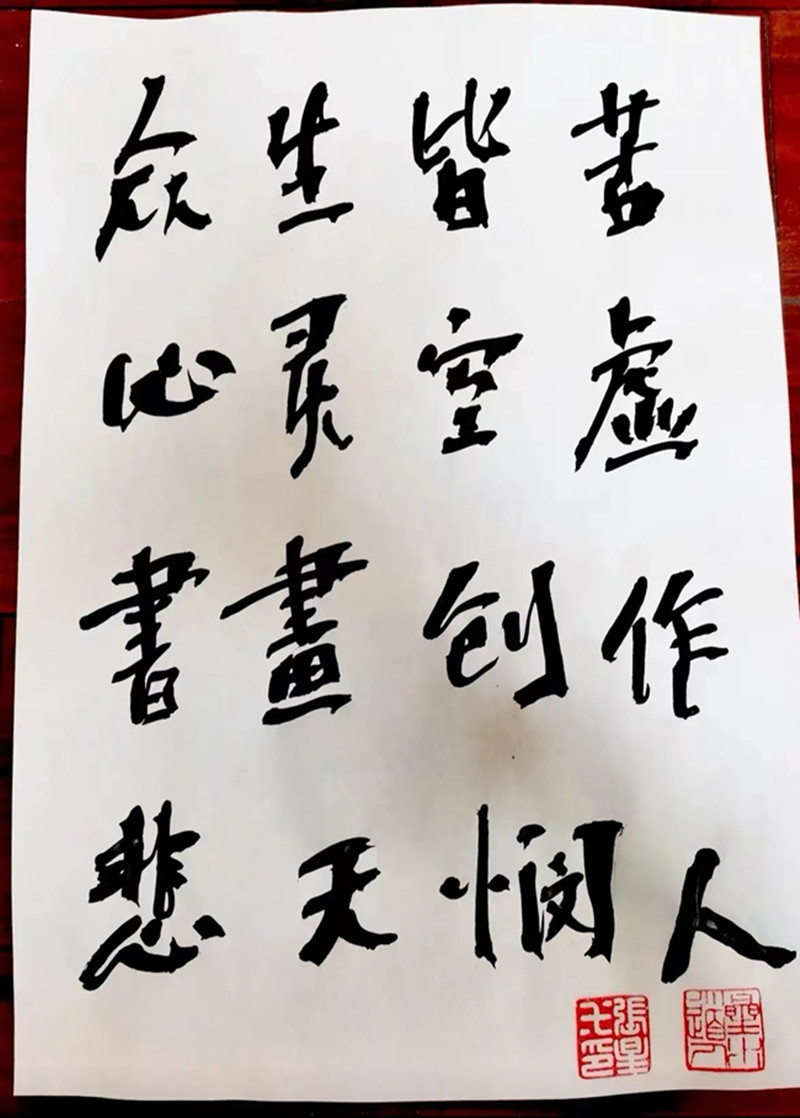 众生皆苦
心灵空虚
書畫创作
悲天悯人